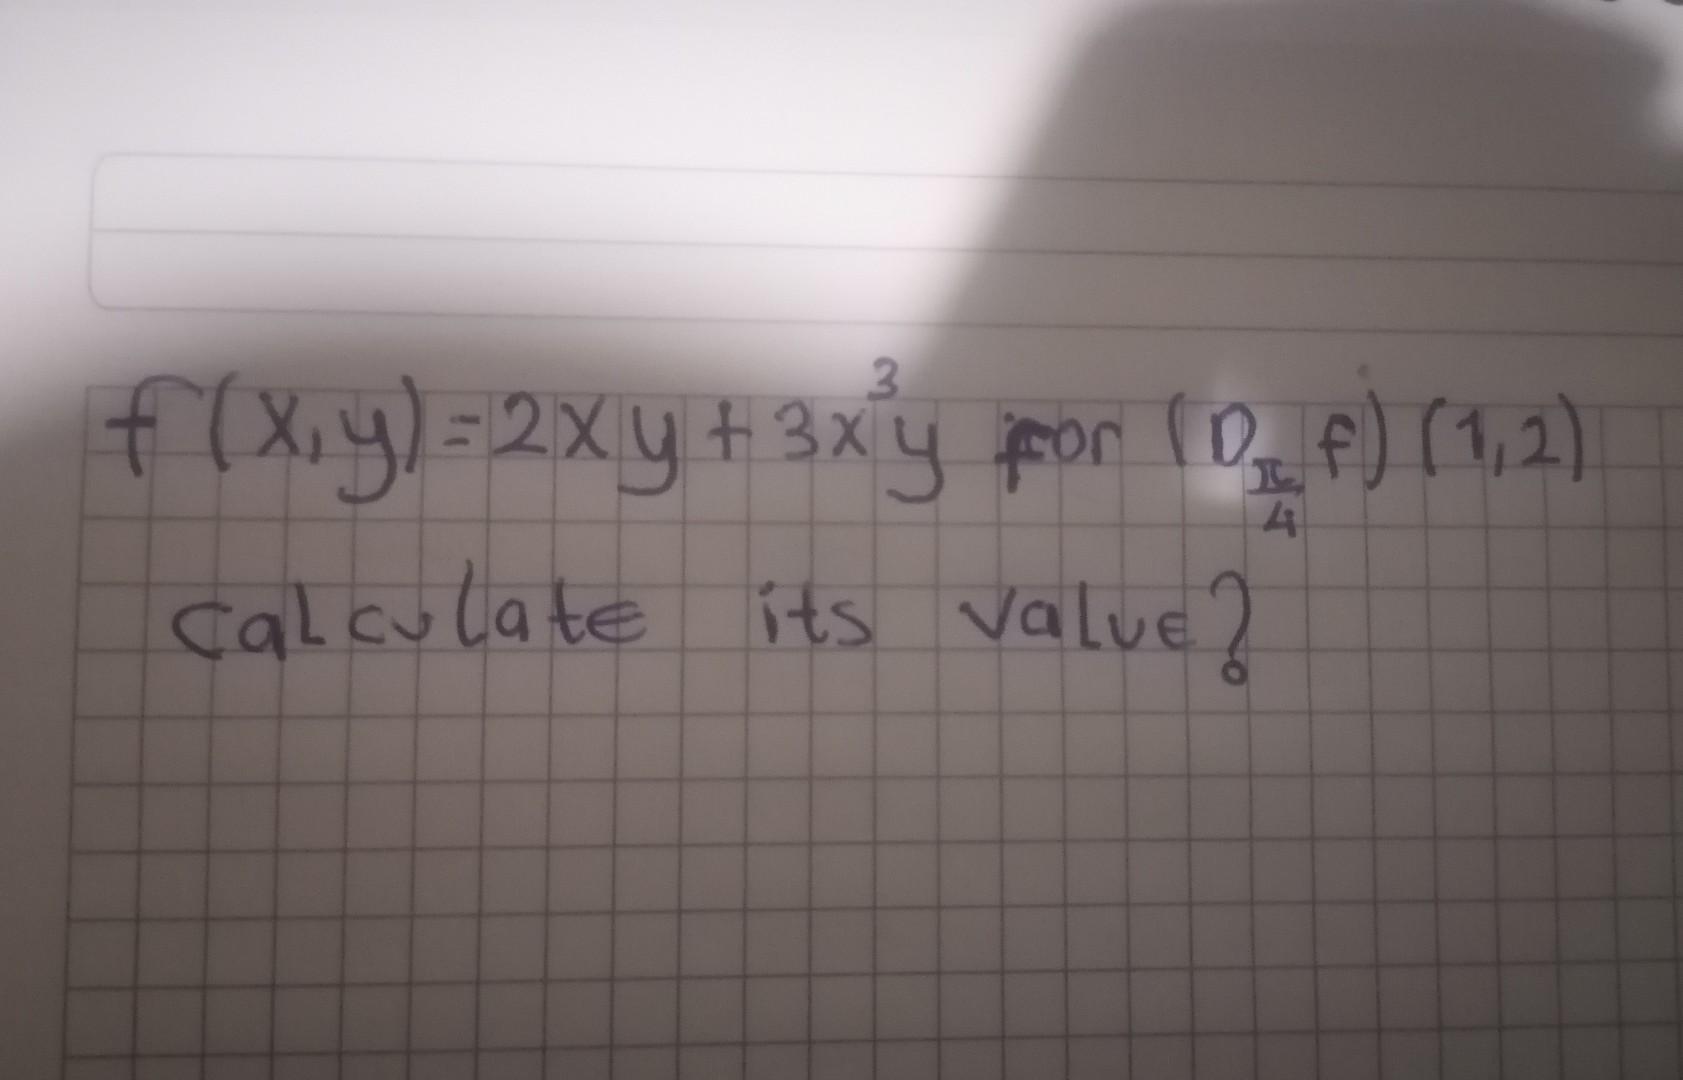 f(x,y)=2xy+3x³y for (D_π/4 f)(1,2)
calculate its value?